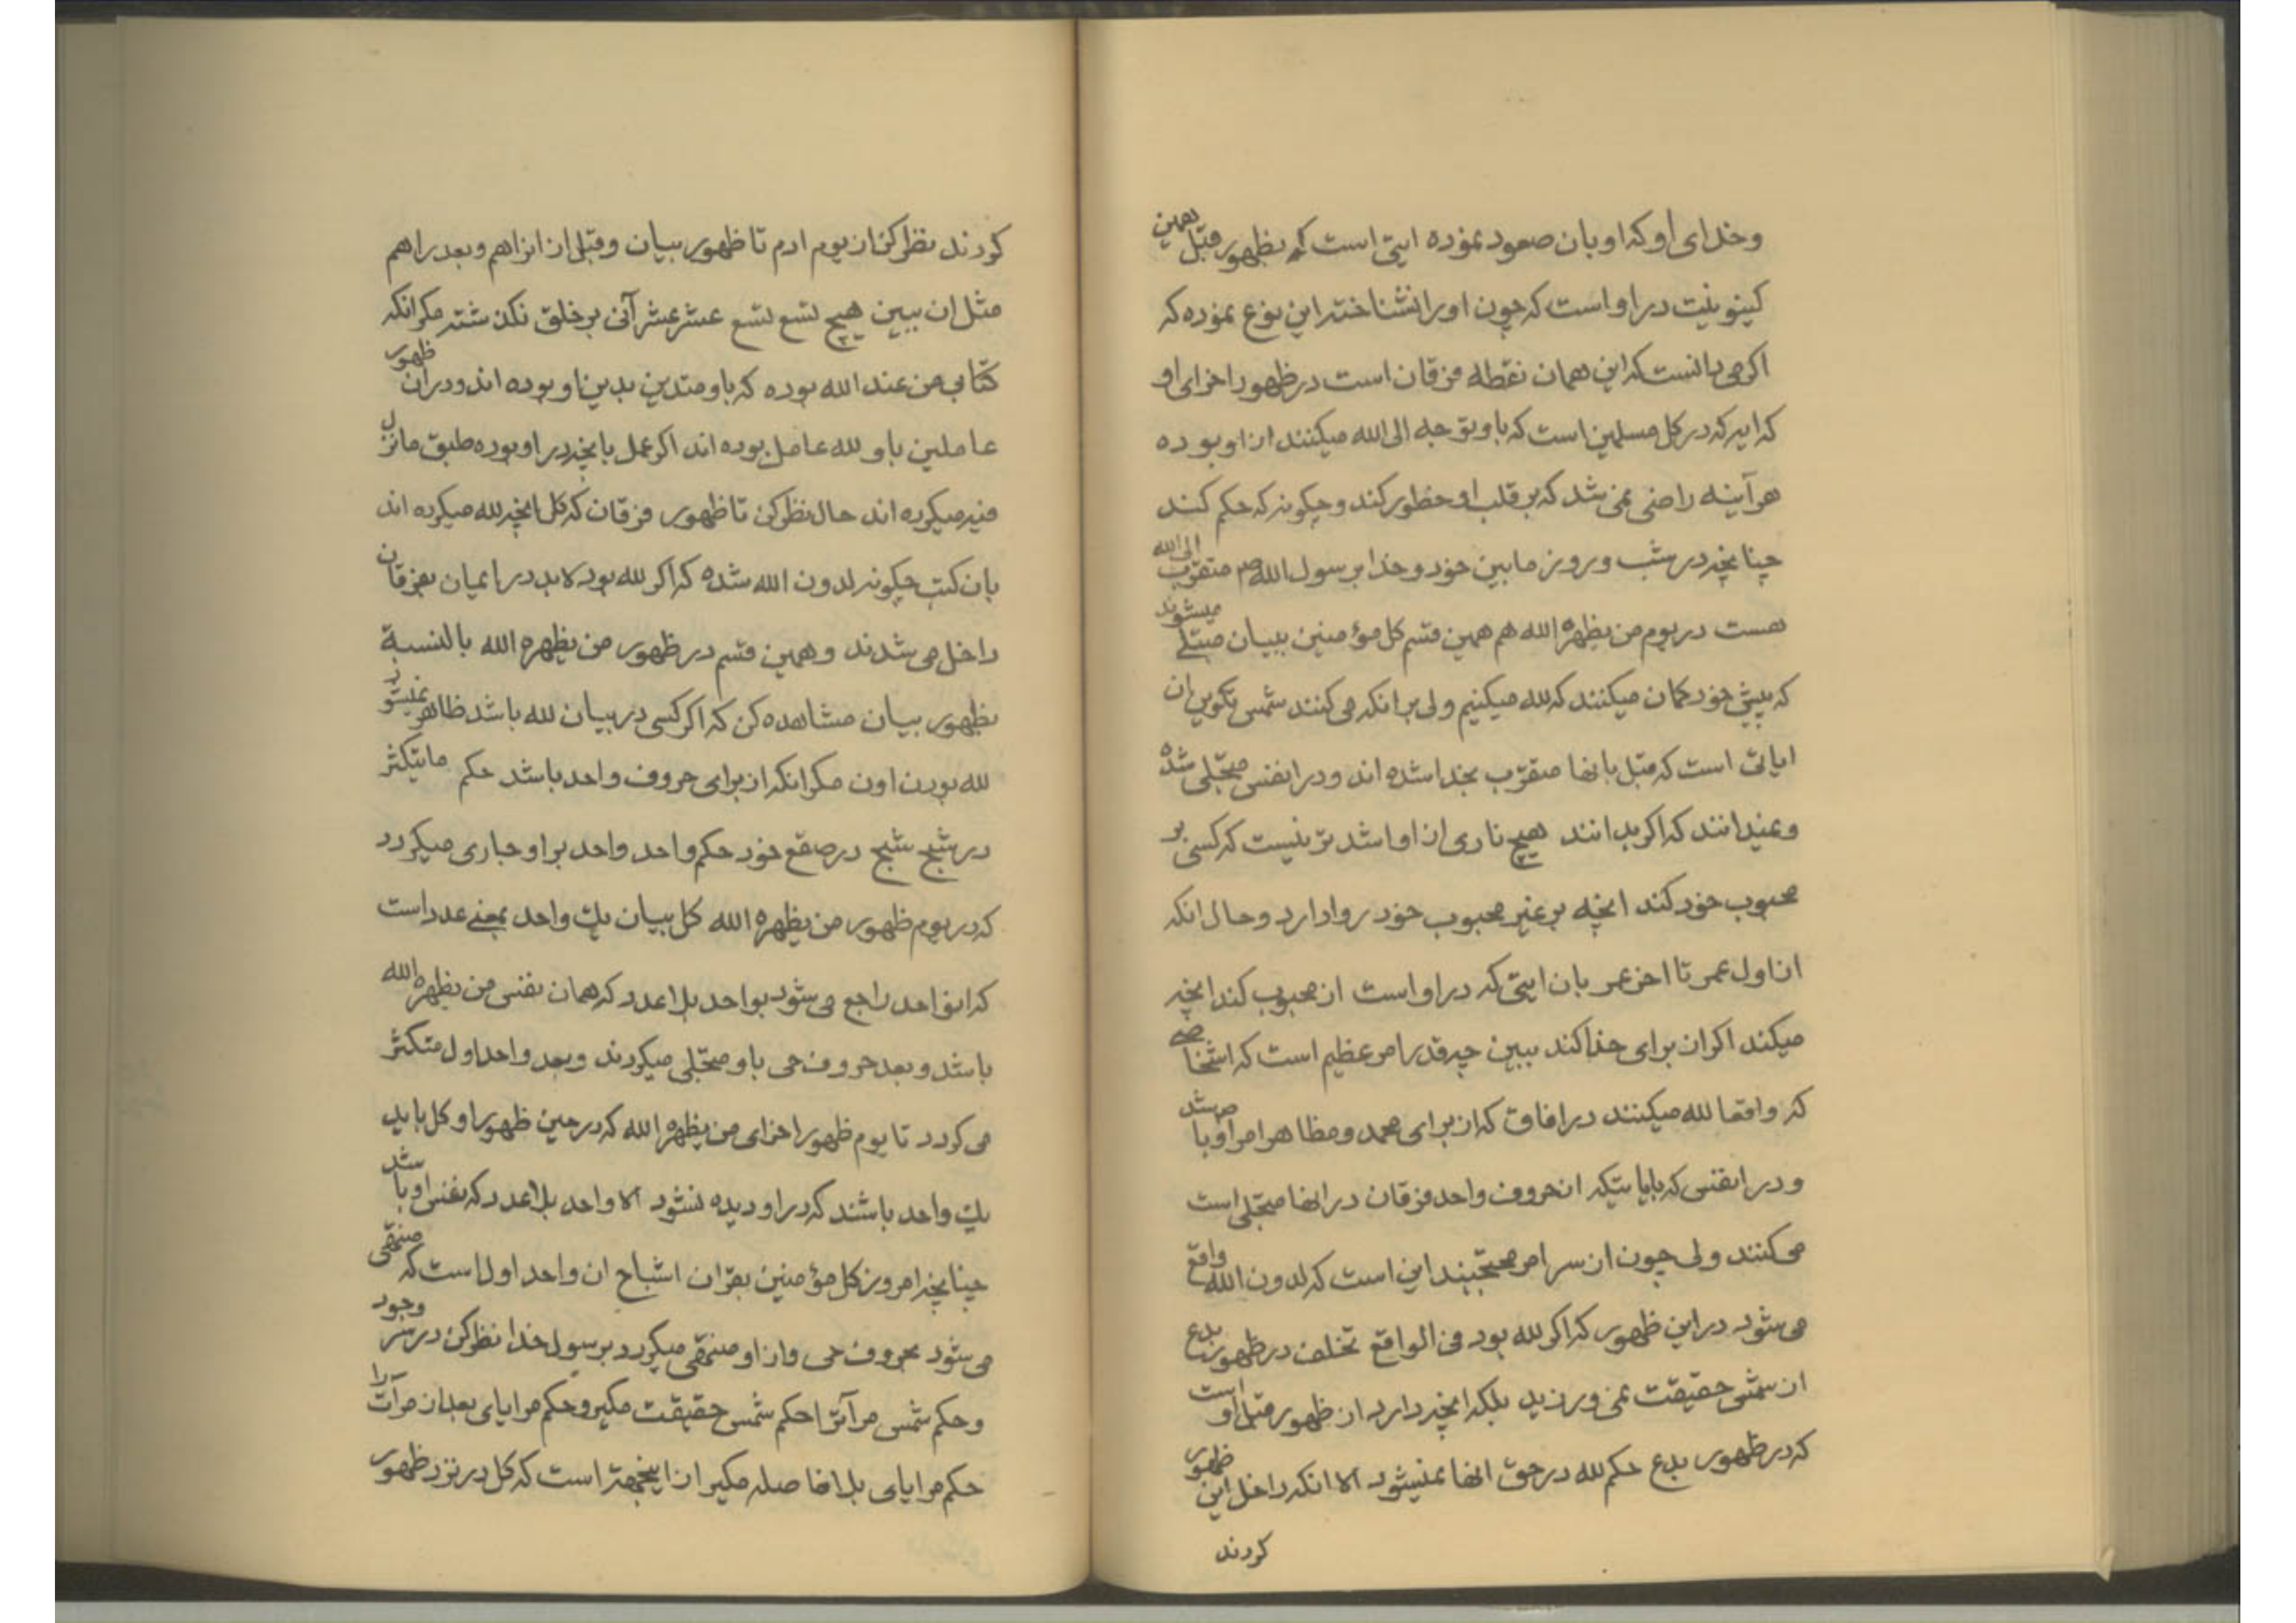 وخدای او که او بان صعود نموده ایتی است که بظهور قبل همین
کینونیت در او است که چون اورا نشناخته این نوع نموده که
اکر می دانست که این همان نقطه فرقان است در ظهور اخرای او
که ایه که در کل مسلمین است که باو توجه الی الله میکنند از او بوده
هر آینه راضی نمی شد که بر قلب او خطور کند و چکونه که حکم کند
چنانچه در شب و روز مابین خود و خدا برسول الله ص متقرب الی الله
هست در یوم من یظهره الله هم همین قسم کل مؤمنین ببیان مبتلے میشوند
که پیش خود کمان میکنند که لله میکنیم ولی برانکه می کنند شمس تکوین ان
ایاتی است که قبل بانها متقرّب بخدا شده اند و در انفس متجلی شده
و نمیدانند که اکر بدانند هیچ ناری از او اشد تر نیست که کسی بر
محبوب خود کند انچه بر غیر محبوب خود روا دارد و حال انکه
از اول عمر تا اخر عمر بان ایتی که در او است از محبوب کند انچه
میکند اکر ان برای خدا کند ببین چه قدر امر عظیم است که اشخاصے
که واقعا لله میکنند در افاق که از برای محمد و مظاهر امر او باشد
و در انفسی که بایاتیکه از حروف واحد فرقان در انها متجلی است
می کنند ولی چون از سر امر محتجبند این است که لدون الله واقع
می شود در این ظهور که اکر لله بود فی الواقع تخلف در ظهور بدع
از شمس حقیقت نمی ورزید بلکه انچه دارد از ظهور قبل او است
که در ظهور بدع حکم لله در حق انها نمیشود الا انکه داخل این ظهور
کردند
کردند نظر کن از یوم ادم تا ظهور بیان و قبل از انراهم و بعد راهم
مثل ان ببین هیچ تسع تسع عشر عشر آنی بر خلق نکذشته مکر انکه
کتابی من عند الله بوده که باو متدین بدین او بوده اند و در ان ظهور
عاملین باو لله عامل بوده اند اکر عمل بانچه در او بوده طبق ما نزل
فیه میکرده اند حال نظر کن تا ظهور فرقان که کل انچه لله میکرده اند
بان کتب چکونه لدون الله شده که اکر لله بود لابد در ایمان بفرقان
داخل می شدند و همین قسم در ظهور من یظهره الله بالنسبة
بظهور بیان مشاهده کن که اکر کسی در بیان لله باشد ظاهر نمیشود
لله بودن اون مکر انکه از برای حروف واحد باشد حکم ما یتکثر
در شبح شبح در صقع خود حکم واحد واحد بر او جاری میکردد
که در یوم ظهور من یظهره الله کل بیان یک واحد بمعنے عدد است
که انواحد راجع می شود بواحد بلا عدد که همان نفس من یظهره الله
باشد و بعد حروف حی باو متجلی میکردند و بعد واحد اول متکثر
می کردد تا یوم ظهور اخرای من یظهره الله که در حین ظهور او کل باید
یک واحد باشند که در او دیده نشود الا واحد بلا عدد که نفس او باشد
چنانچه امروز کل مؤمنین بقران اشباح ان واحد اول است که منتهی
می شود بحروف حی و از او منتهی میکردد برسول خدا نظر کن در سر وجود
و حکم شمس مرآترا حکم شمس حقیقت مکیر و حکم مرایای بعد از مرآت را
حکم مرایای بلا فاصله مکیر از اینجهة است که کل در نزد ظهور